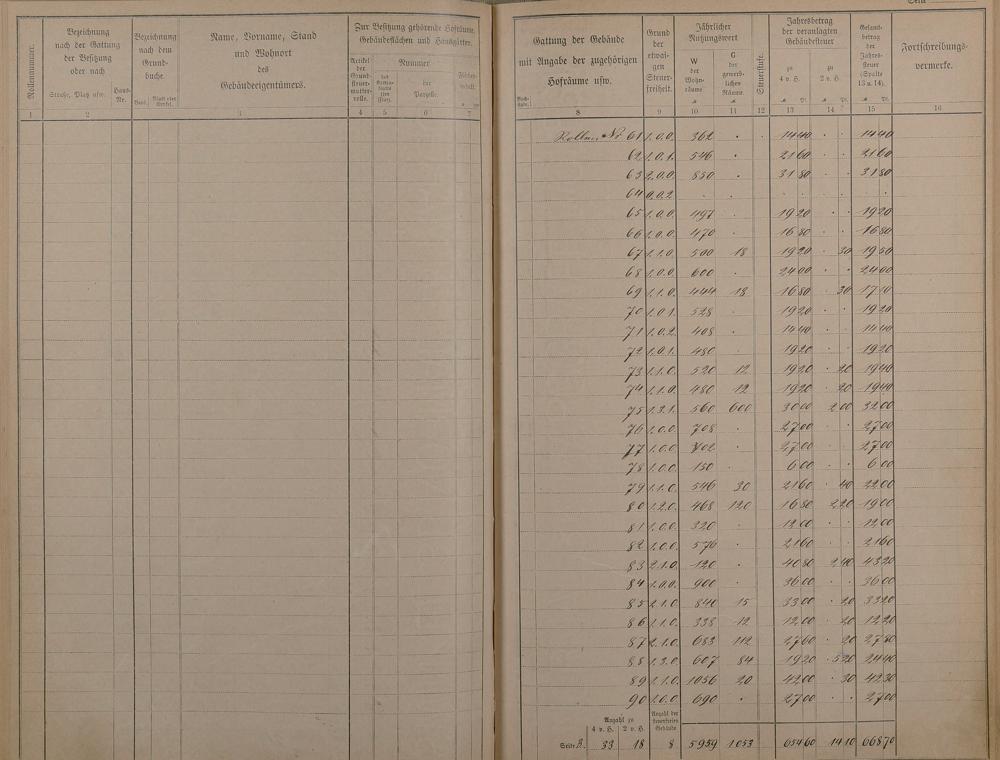 Seite
Rollennummer.
Bezeichnung
nach der Gattung
der Besitzung
oder nach
Straße, Platz usw.
Haus-
Nr.
Bezeichnung
nach dem
Grund-
buche.
Band.
Blatt oder
Artikel.
Name, Vorname, Stand
und Wohnort
des
Gebäudeeigentümers.
Zur Besitzung gehörende Hofräume,
Gebäudeflächen und Hausgärten.
Artikel
der
Grund-
steuer-
mutter-
rolle.
Nummer
des
Karten-
blatts
(Flur).
der
Parzelle.
Flächen-
inhalt.
1 2 3 4 5 6 7
Gattung der Gebäude
mit Angabe der zugehörigen
Hofräume usw.
Buch-
stabe.
Grund
der
etwai-
gen
Steuer-
freiheit.
Jährlicher
Nutzungswert
W
der
Wohn-
räume
G
der
gewerb-
lichen
Räume.
Steuerstufe.
Jahresbetrag
der veranlagten
Gebäudesteuer
zu
4 v. H.
zu
2 v. H.
Gesamt-
betrag
der
Jahres-
steuer
(Spalte
13 u. 14).
Fortschreibungs-
vermerke.
8 9 10 11 12 13 14 15 16
Rollen Nr 61 1.0.0. 362 . 1440 . 1440
62 1.0.1. 546 . 2160 . 2160
63 2.0.0. 850 . 3180 . 3180
64 0.0.2. . . . . .
65 1.0.0. 497 . 1920 . 1920
66 1.0.0. 470 . 1680 . 1680
67 1.1.0. 500 18 1920 . 30 1950
68 1.0.0. 600 . 2400 . 2400
69 1.1.0. 444 18 1680 . 30 1710
70 1.0.1. 528 . 1920 . 1920
71 1.0.2. 408 . 1440 . 1440
72 1.0.1. 480 . 1920 . 1920
73 1.1.0. 520 12 1920 . 20 1940
74 1.1.0. 480 12 1920 . 20 1940
75 1.3.1. 560 600 3000 200 3200
76 1.0.0. 708 . 2700 . 2700
77 1.0.0. 702 . 2700 . 2700
78 1.0.0. 150 . 600 . 600
79 1.1.0. 546 30 2160 . 40 2200
80 1.2.0. 468 120 1680 220 1900
81 1.0.0. 320 . 1200 . 1200
82 1.0.0. 576 . 2160 . 2160
83 2.1.0. 120 . 4080 240 4320
84 1.0.0. 900 . 3600 . 3600
85 2.1.0. 840 15 3300 . 20 3320
86 1.1.0. 338 12 1200 . 20 1220
87 2.1.0. 683 112 2760 . 20 2780
88 1.3.0. 607 84 1920 . 520 2440
89 1.1.0. 1056 20 4200 . 30 4230
90 1.0.0. 690 . 2700 . 2700
Anzahl zu
4 v. H. 2 v. H.
Anzahl der
steuerfreien
Gebäude
Seite 3. 33 18 8 5959 1053 65460 1410 66870